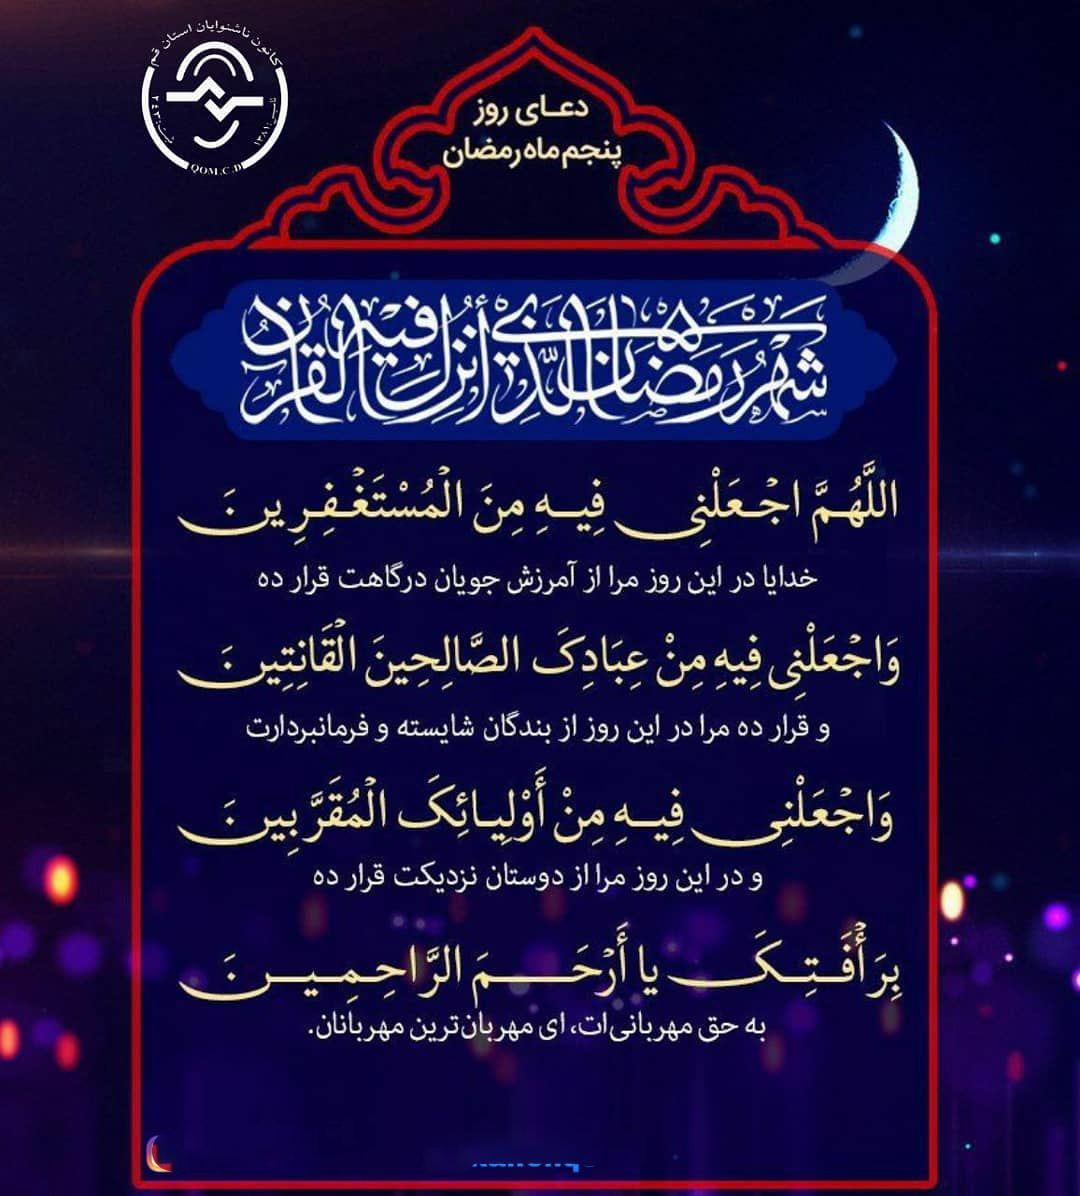 کانون ناشنوایان استان قم
QOM.C.D
دعای روز
پنجم ماه رمضان
شَهْرُ رَمَضانَ الَّذي أُنْزِلَ فيهِ الْقُرْآنُ
اللَّهُمَّ اجْعَلْنِی فِیهِ مِنَ الْمُسْتَغْفِرِینَ
خدایا در این روز مرا از آمرزش جویان درگاهت قرار ده
وَاجْعَلْنِی فِیهِ مِنْ عِبَادِکَ الصَّالِحِینَ الْقَانِتِینَ
و قرار ده مرا در این روز از بندگان شایسته و فرمانبردارت
وَاجْعَلْنِی فِیهِ مِنْ أَوْلِیائِکَ الْمُقَرَّبِینَ
و در این روز مرا از دوستان نزدیکت قرار ده
بِرَأْفَتِکَ یا أَرْحَمَ الرَّاحِمِینَ
به حق مهربانی‌ات، ای مهربان‌ترین مهربانان.